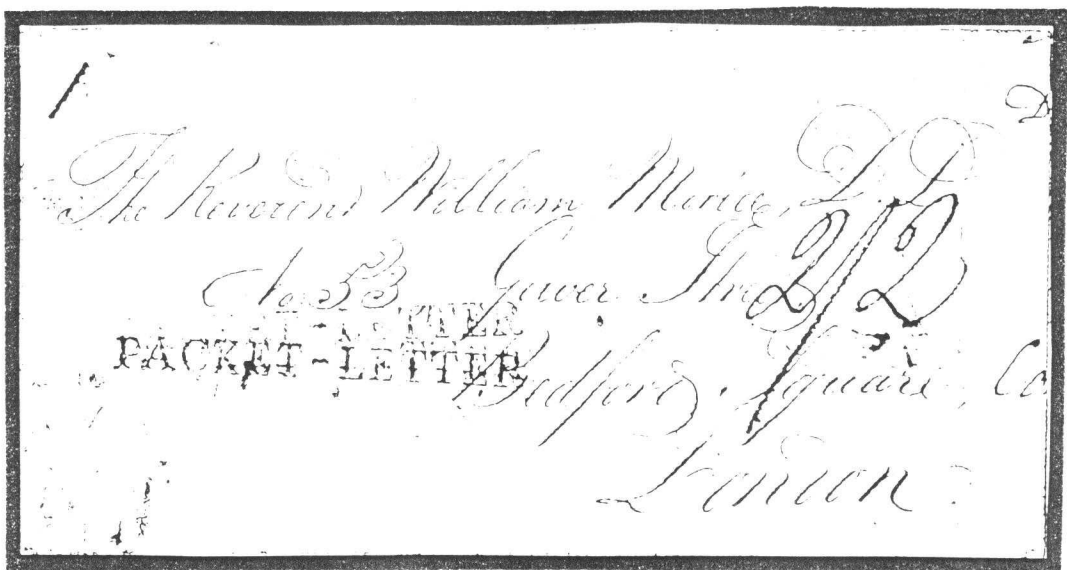 The Reverend William Morice, D.D
2/2
No. 53 Gower Stre
PACKET-LETTER
PACKET-LETTER
Bedford Square, Co
London